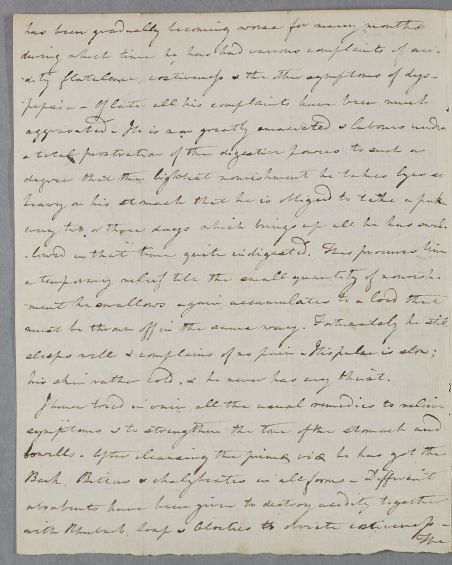 has been gradually becoming worse for many months
during which time he has had various complaints of aci-
dity flatulence, costiveness & the other symptoms of dys-
pepsia - Of late all his complaints have been much
aggravated. He is now greatly emaciated & labours under
a total prostration of the digestive powers to such a
degree that the lightest nourishment he takes lyes so
heavy on his stomach that he is obliged to take a puke
every two or three days which brings up all he has swal-
lowed in that time quite indigested. This procures him
a temporary relief till the small quantity of nourish-
ment he swallows again accumulates to a load that
must be thrown off in the same way. Fortunately he still
sleeps well & complains of no pain - His pulse is slow;
his skin rather cold, & he never has any thirst.
I have tried in vain all the usual remedies to relieve
symptoms & to strengthen the tone of the stomach and
bowells - After cleansing the primæ viæ he has got the
Bark, Bitters & chalybeates in all forms - Different
absorbents have been given to destroy acidity together
with Rhubarb, soap & Aloetics to obviate costiveness -
The